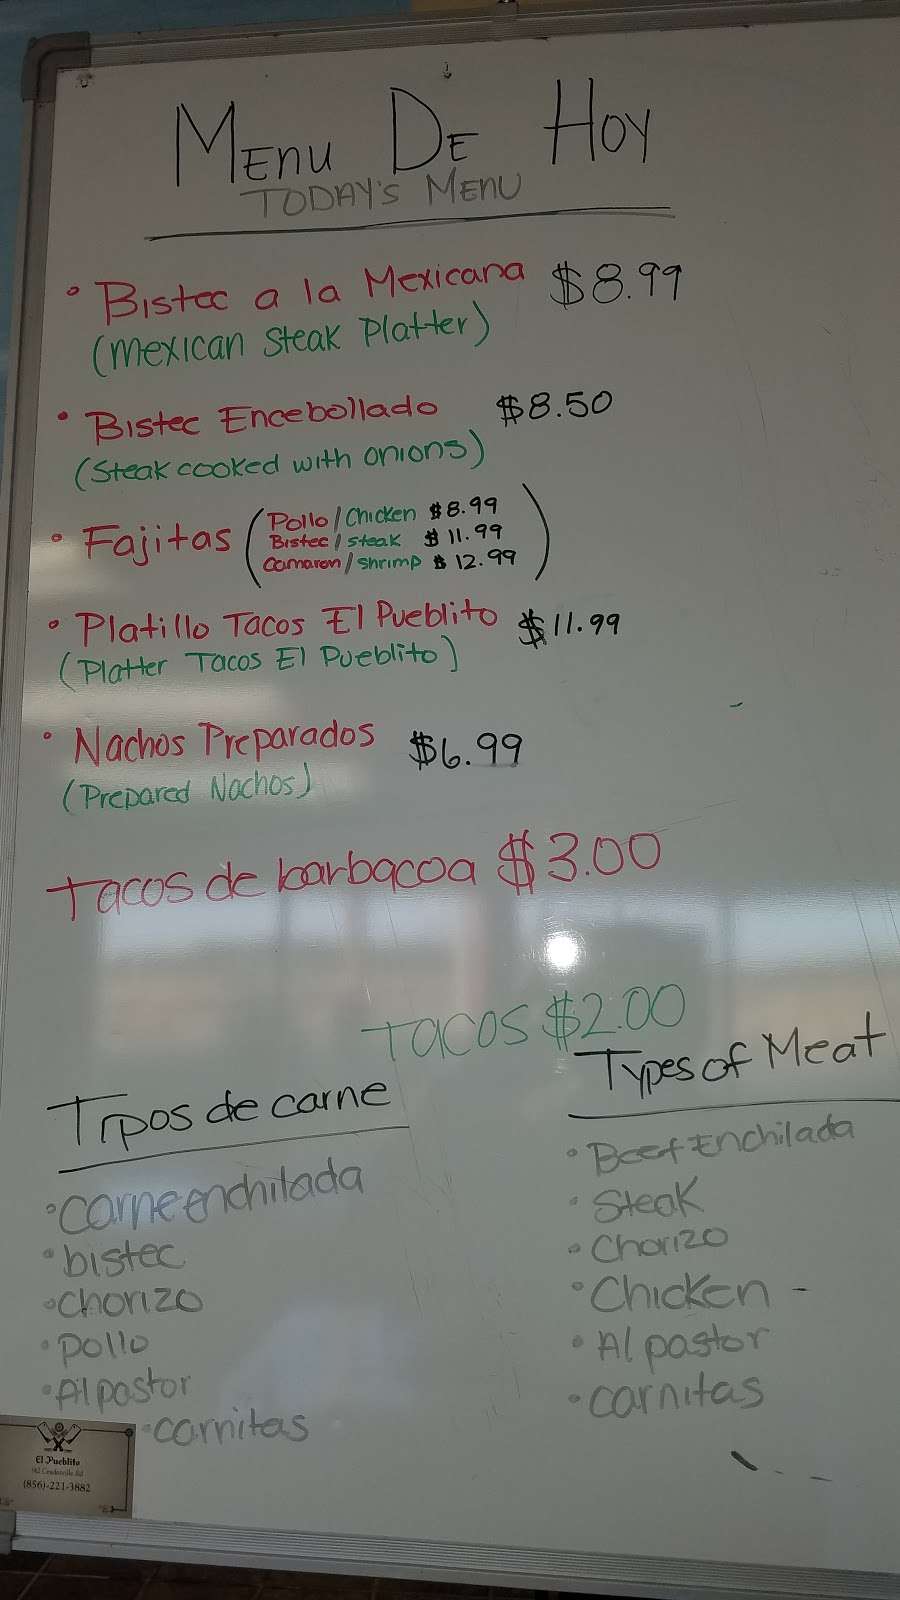 MENU DE HOY
TODAY'S MENU
• Bistec a la Mexicana $8.99
(Mexican Steak Platter)
• Bistec Encebollado $8.50
(Steak cooked with onions)
• Fajitas (Pollo/Chicken $8.99
Bistec/steak $11.99
Camaron/shrimp $12.99)
• Platillo Tacos El Pueblito $11.99
(Platter Tacos El Pueblito)
• Nachos Preparados $6.99
(Prepared Nachos)
Tacos de barbacoa $3.00
Tacos $2.00
Tipos de carne
• Carne enchilada
• bistec
• Chorizo
• Pollo
• Al pastor
• carnitas
Types of Meat
• Beef Enchilada
• Steak
• Chorizo
• Chicken -
• Al pastor
• carnitas
El Pueblito
(856)-221-3882